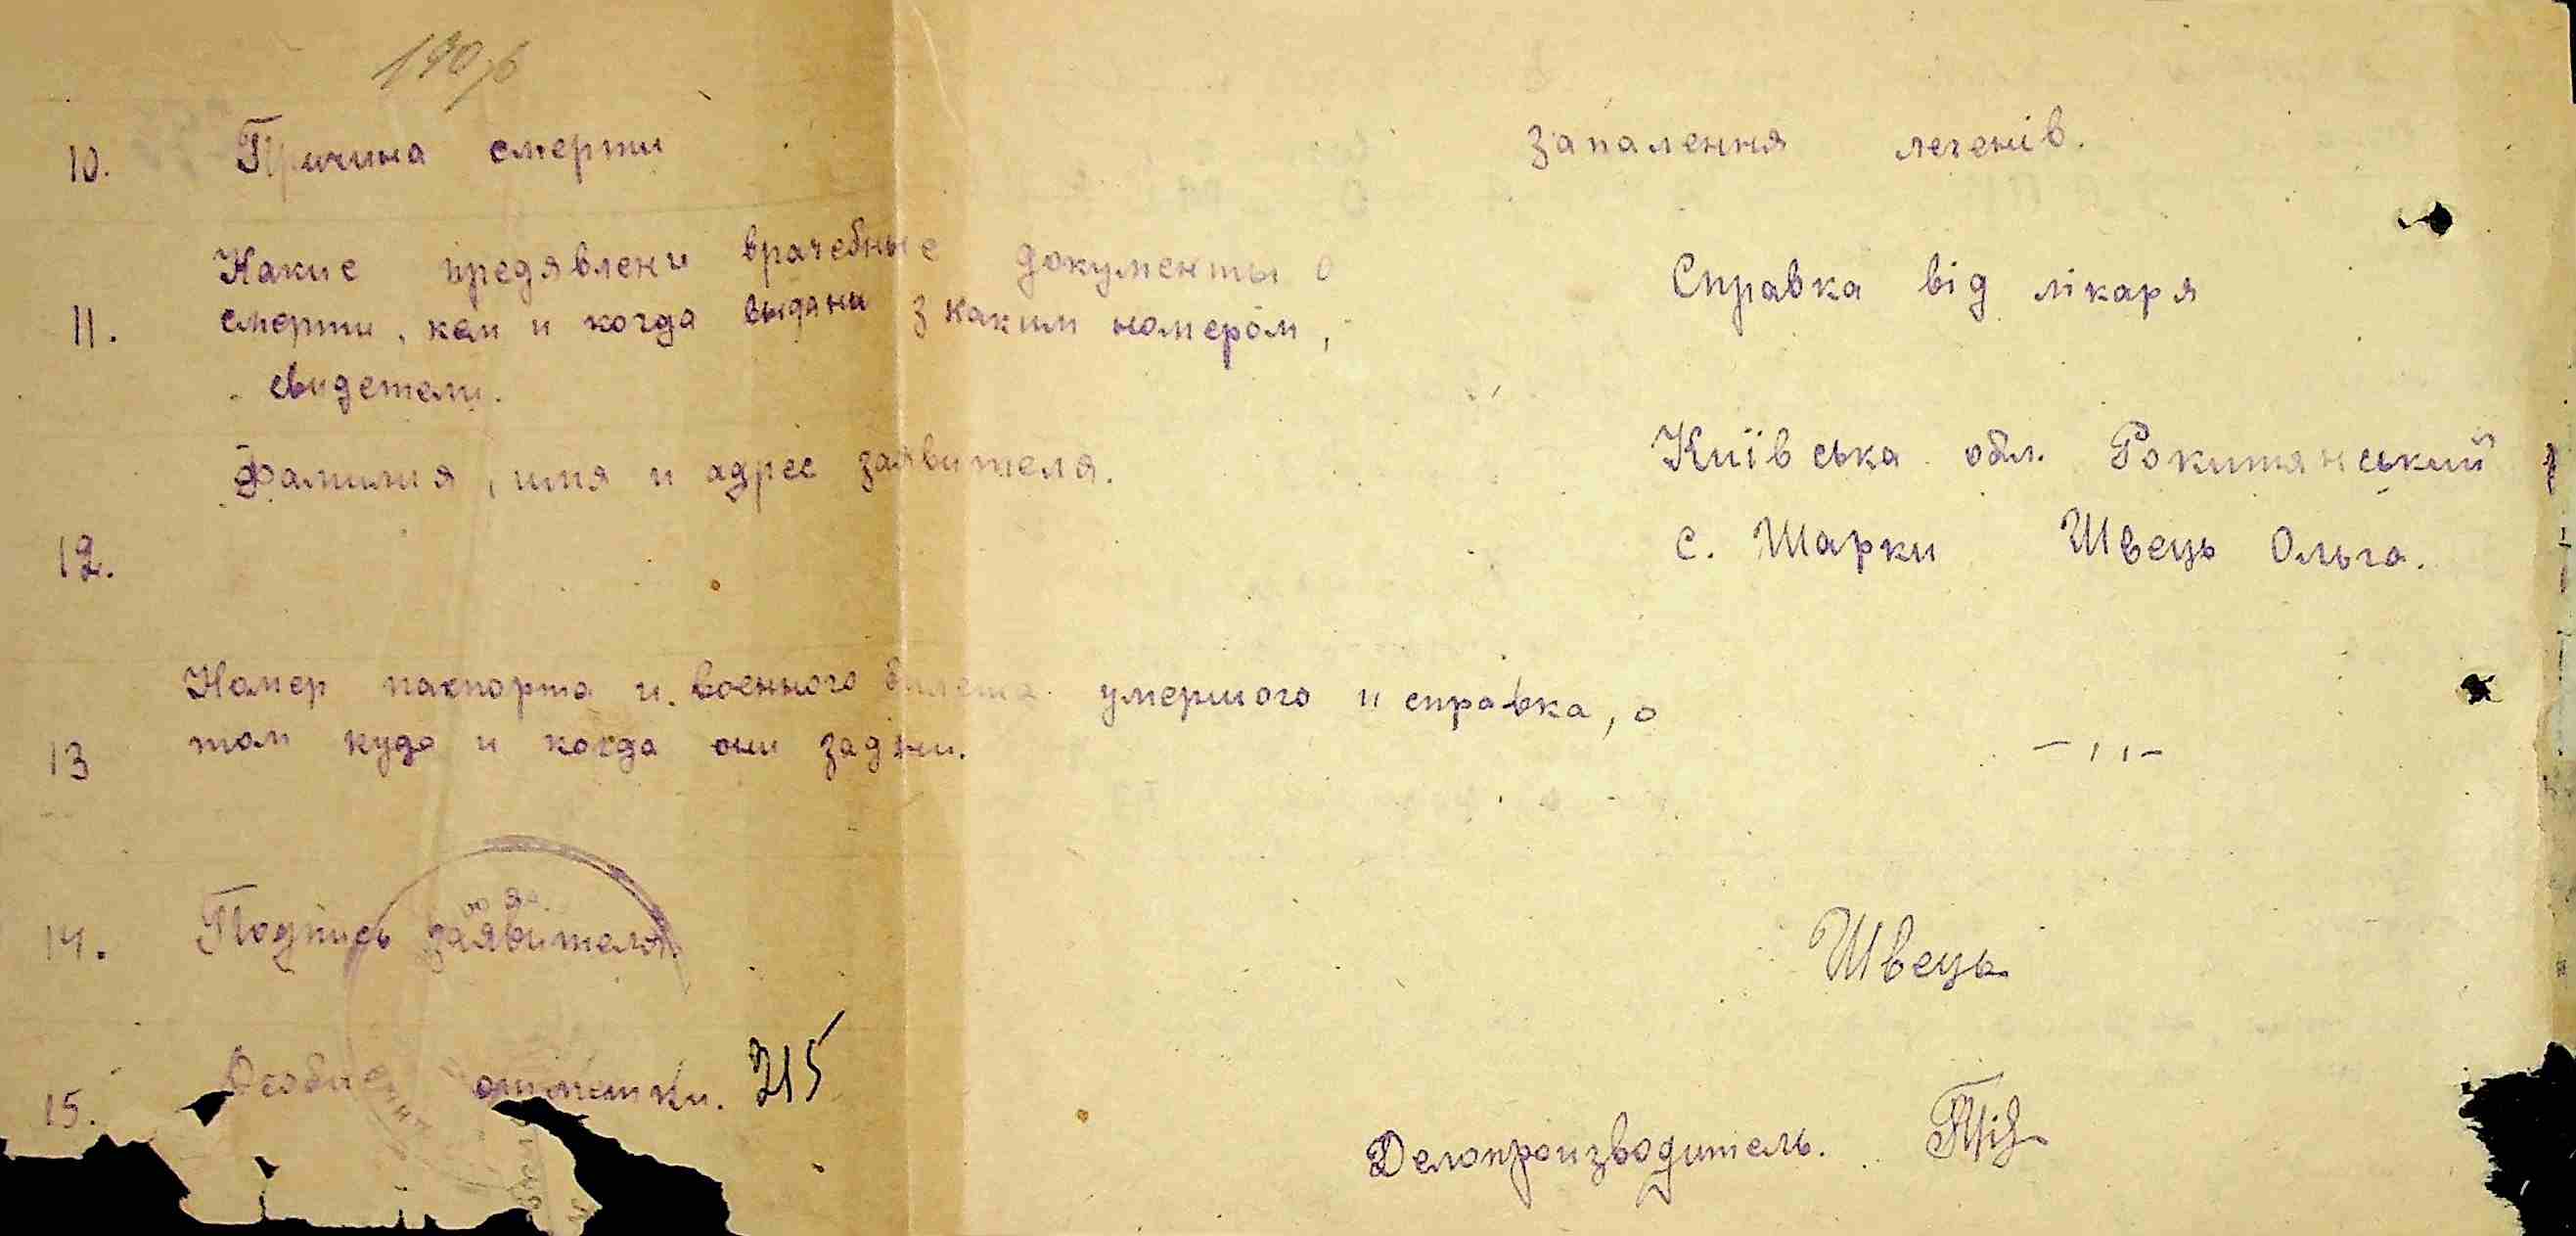 190зв
10. Причина смерти запалення легенів.
Какие предявлени врачебные документы о
11. смерти, кем и когда выдани з каким номером, Справка від лікаря
свидетели.
Фамилия, имя и адрес заявителя. Київська обл. Рокитянський р
12. с. Шарки Швець Ольга.
Номер паспорта и военного билета умершого и справка, о
13 том куда и когда они задани. -,,-
14. Подпись заявителя Швець
15. Особие отметки. 215
Делопроизводитель.